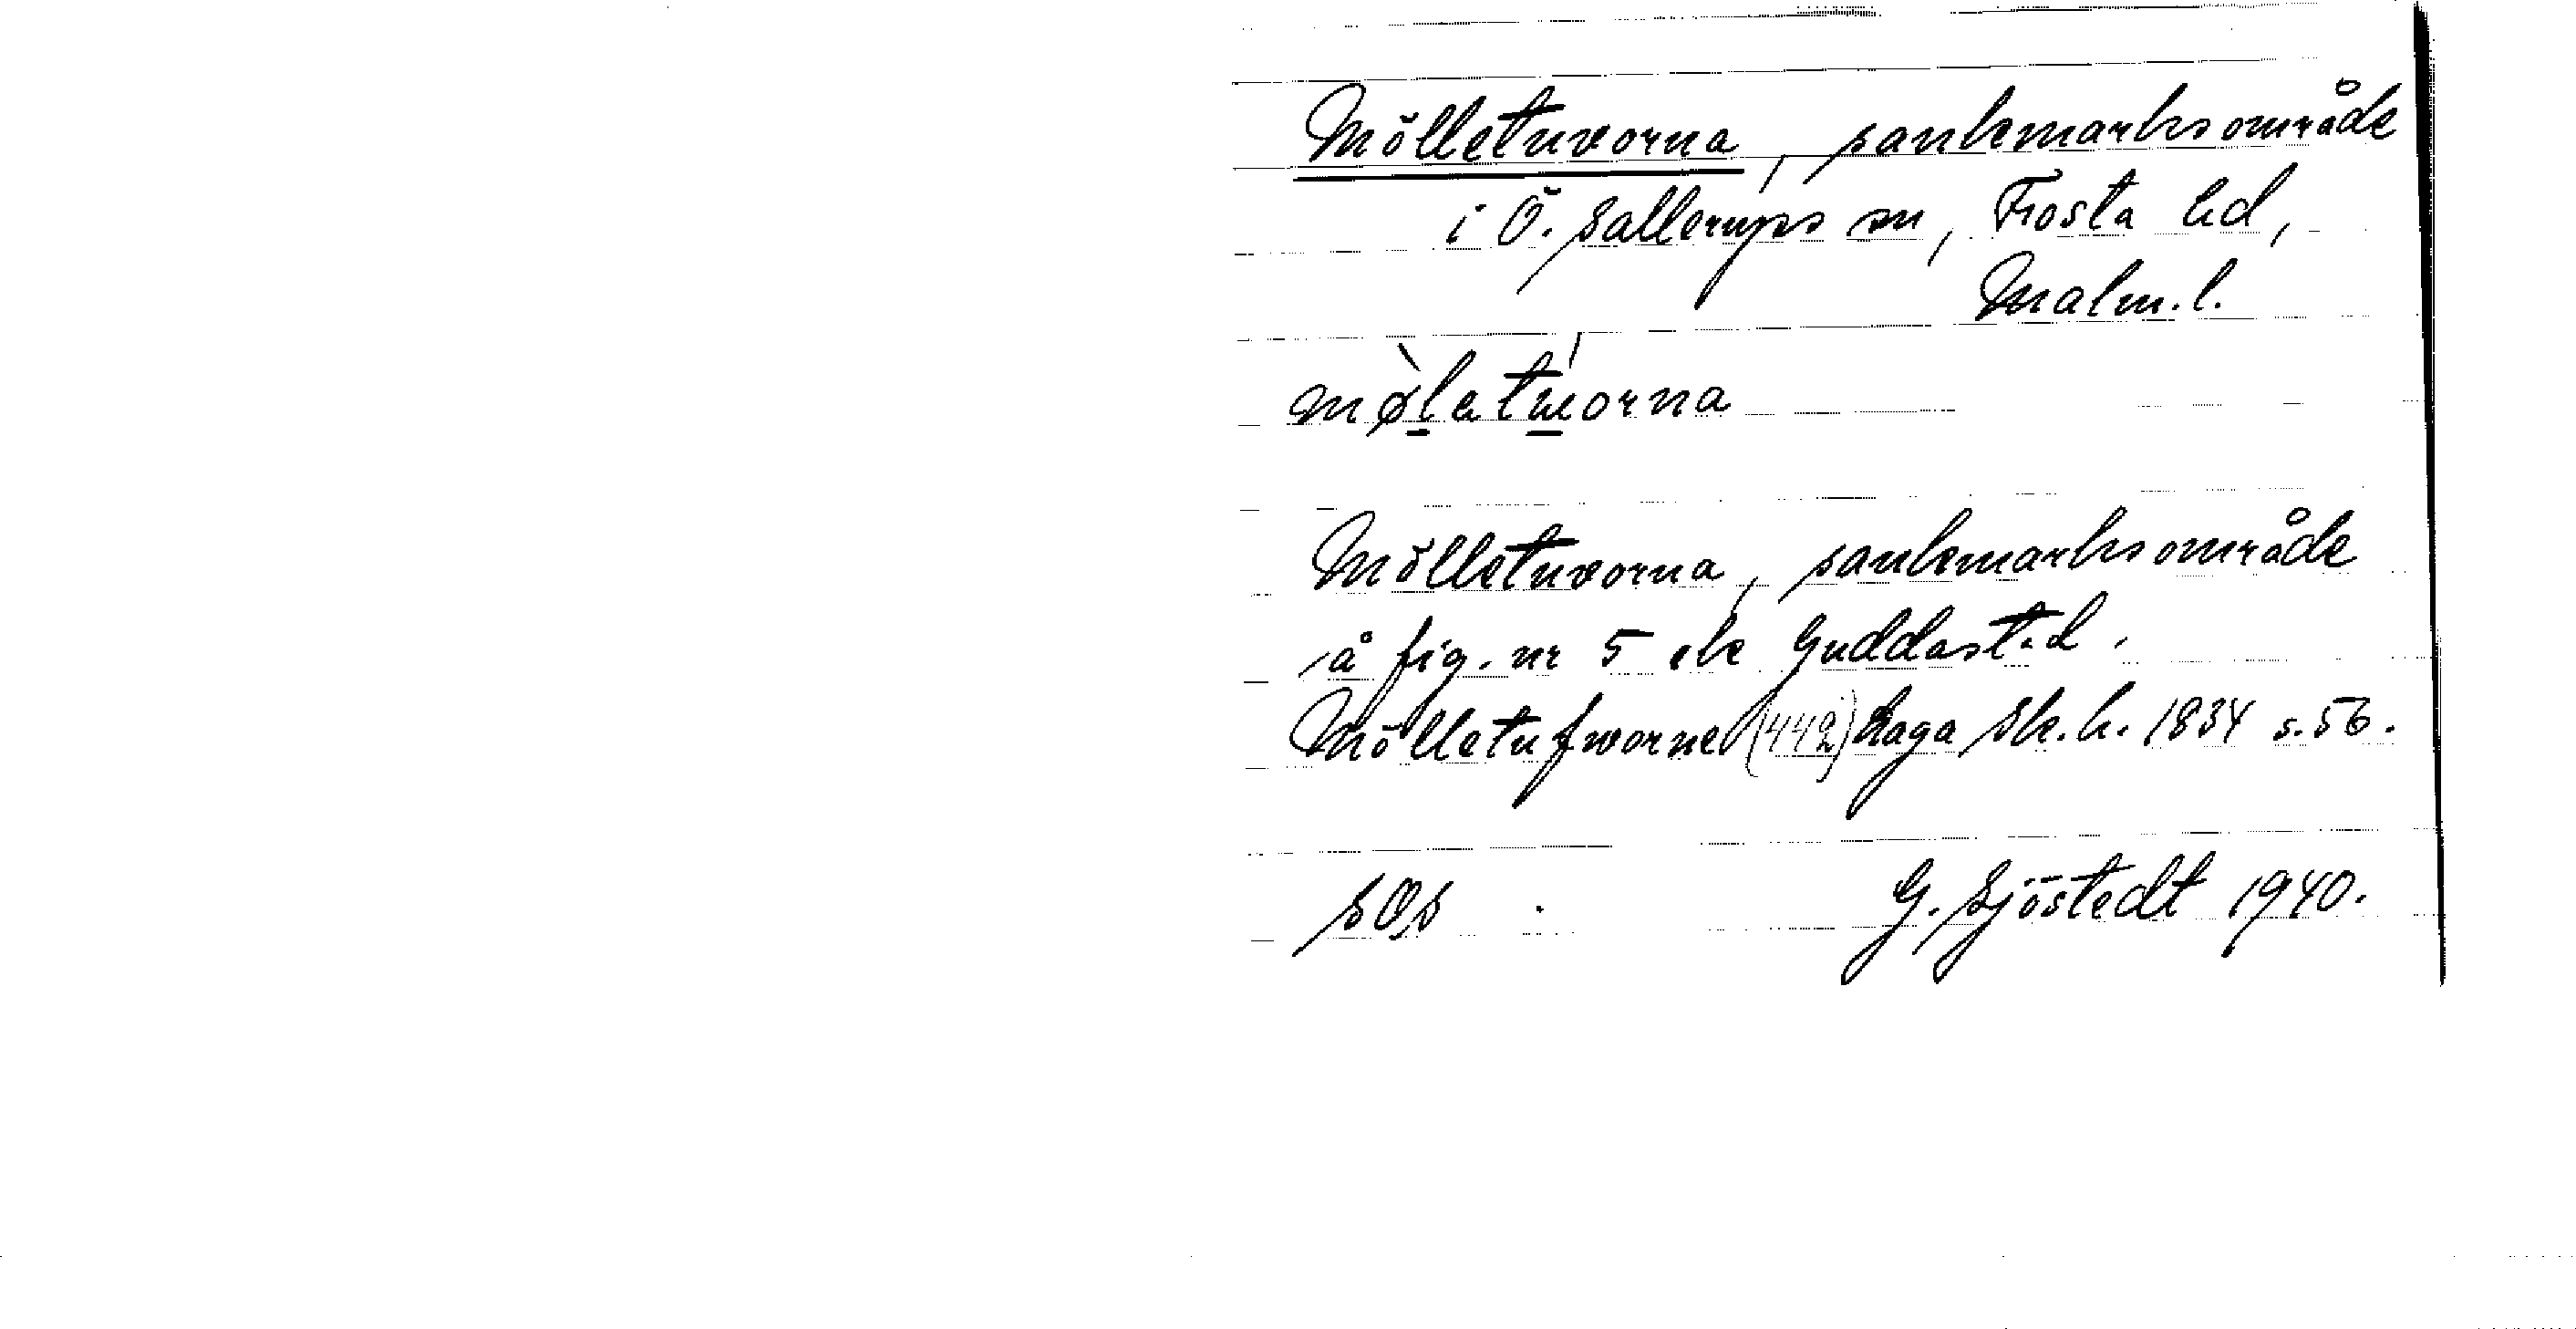 Mölletuvorna, sankmarksområde
i Ö. Sallerups sn, Frosta hd,
Malm.l.
Mölletuvorna, sankmarksområde
å fig. nr 5 
Mölletufworne (442) Laga Sk.h. 1834 s.56.
SOS
G. Sjöstedt 1940.